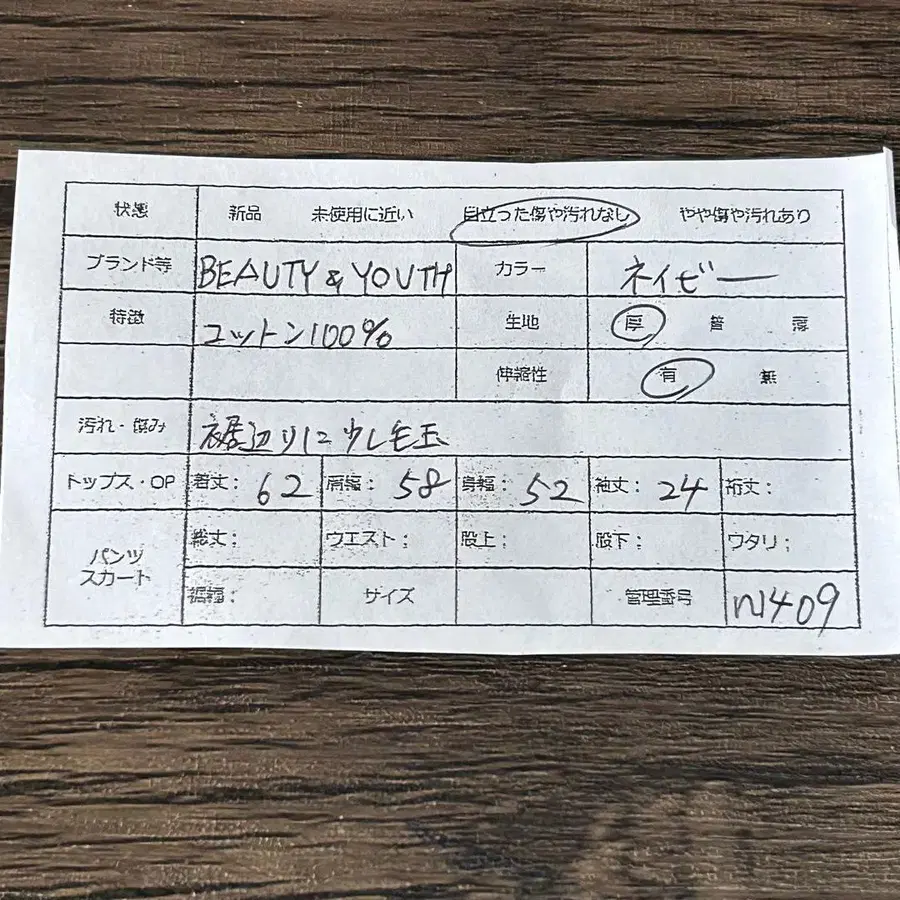 状態 新品 未使用に近い 目立った傷や汚れなし やや傷や汚れあり
ブランド等 BEAUTY & YOUTH カラー ネイビー
特徴 コットン100% 生地 厚 普 薄
伸縮性 有 無
汚れ・傷み 裾辺りに少し毛玉
トップス・OP 着丈: 62 肩幅: 58 身幅: 52 袖丈: 24 裄丈:
パンツ スカート 総丈: ウエスト: 股上: 股下: ワタリ:
裾幅: サイズ 管理番号 N1409